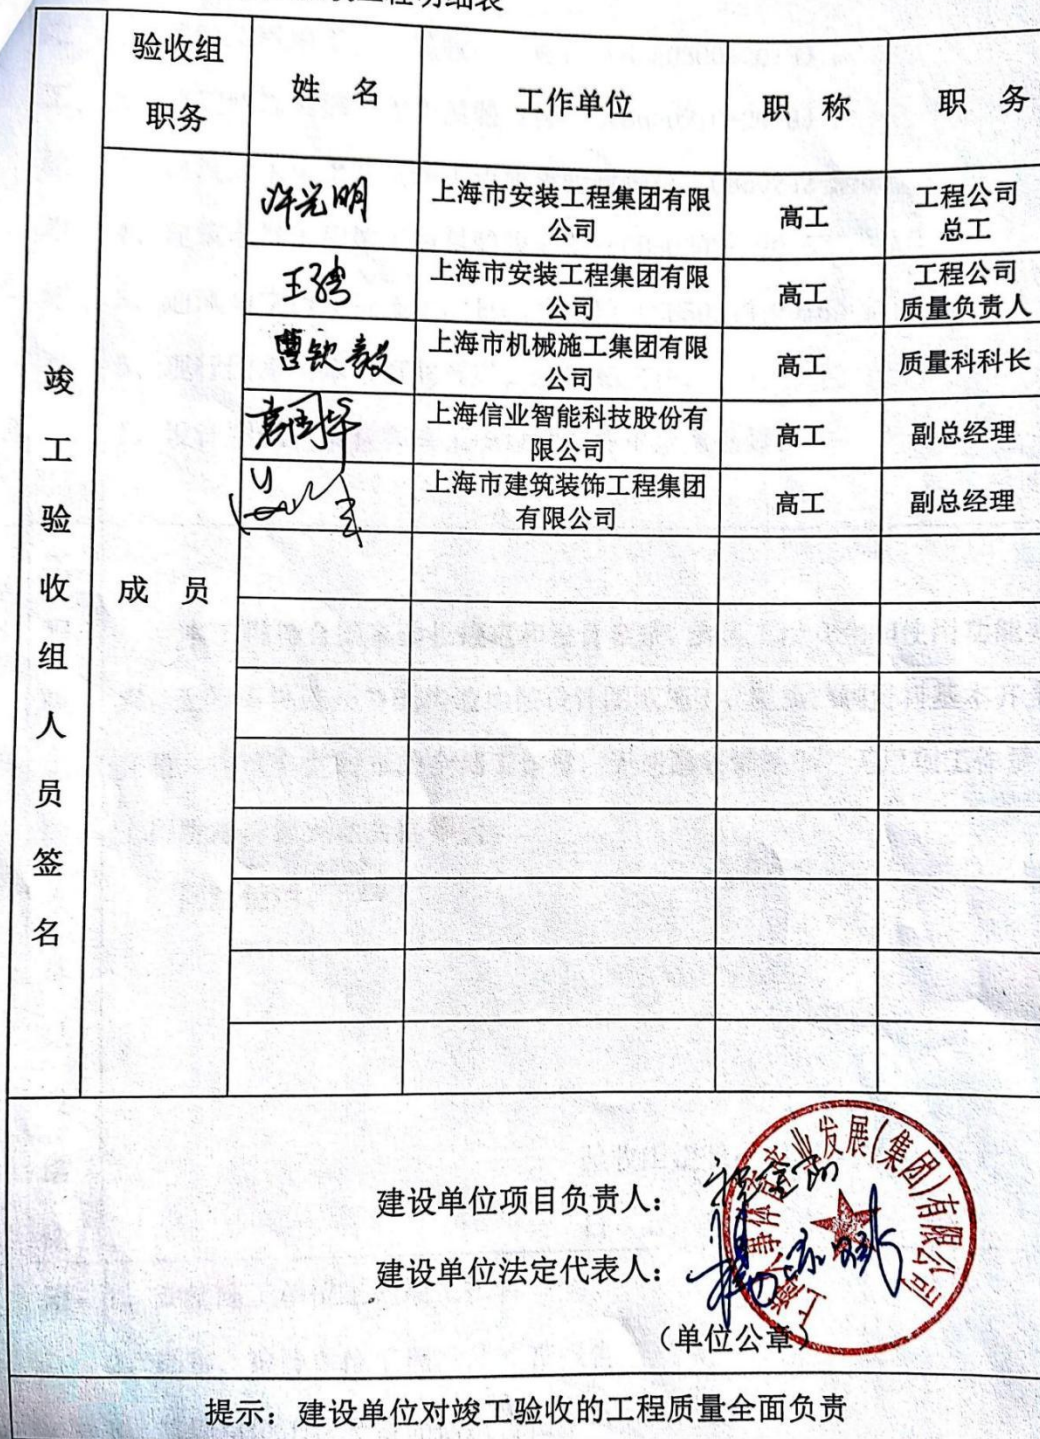 工程明细表
验收组
职务
姓 名
工作单位
职 称
职 务
竣工验收组人员签名
成 员
许光明
上海市安装工程集团有限
公司
高工
工程公司
总工
王骋
上海市安装工程集团有限
公司
高工
工程公司
质量负责人
曹钦毅
上海市机械施工集团有限
公司
高工
质量科科长
袁国华
上海信业智能科技股份有
限公司
高工
副总经理
上海市建筑装饰工程集团
有限公司
高工
副总经理
建设单位项目负责人：
建设单位法定代表人：
（单位公章）
体育产业发展(集团)有限公司
提示：建设单位对竣工验收的工程质量全面负责